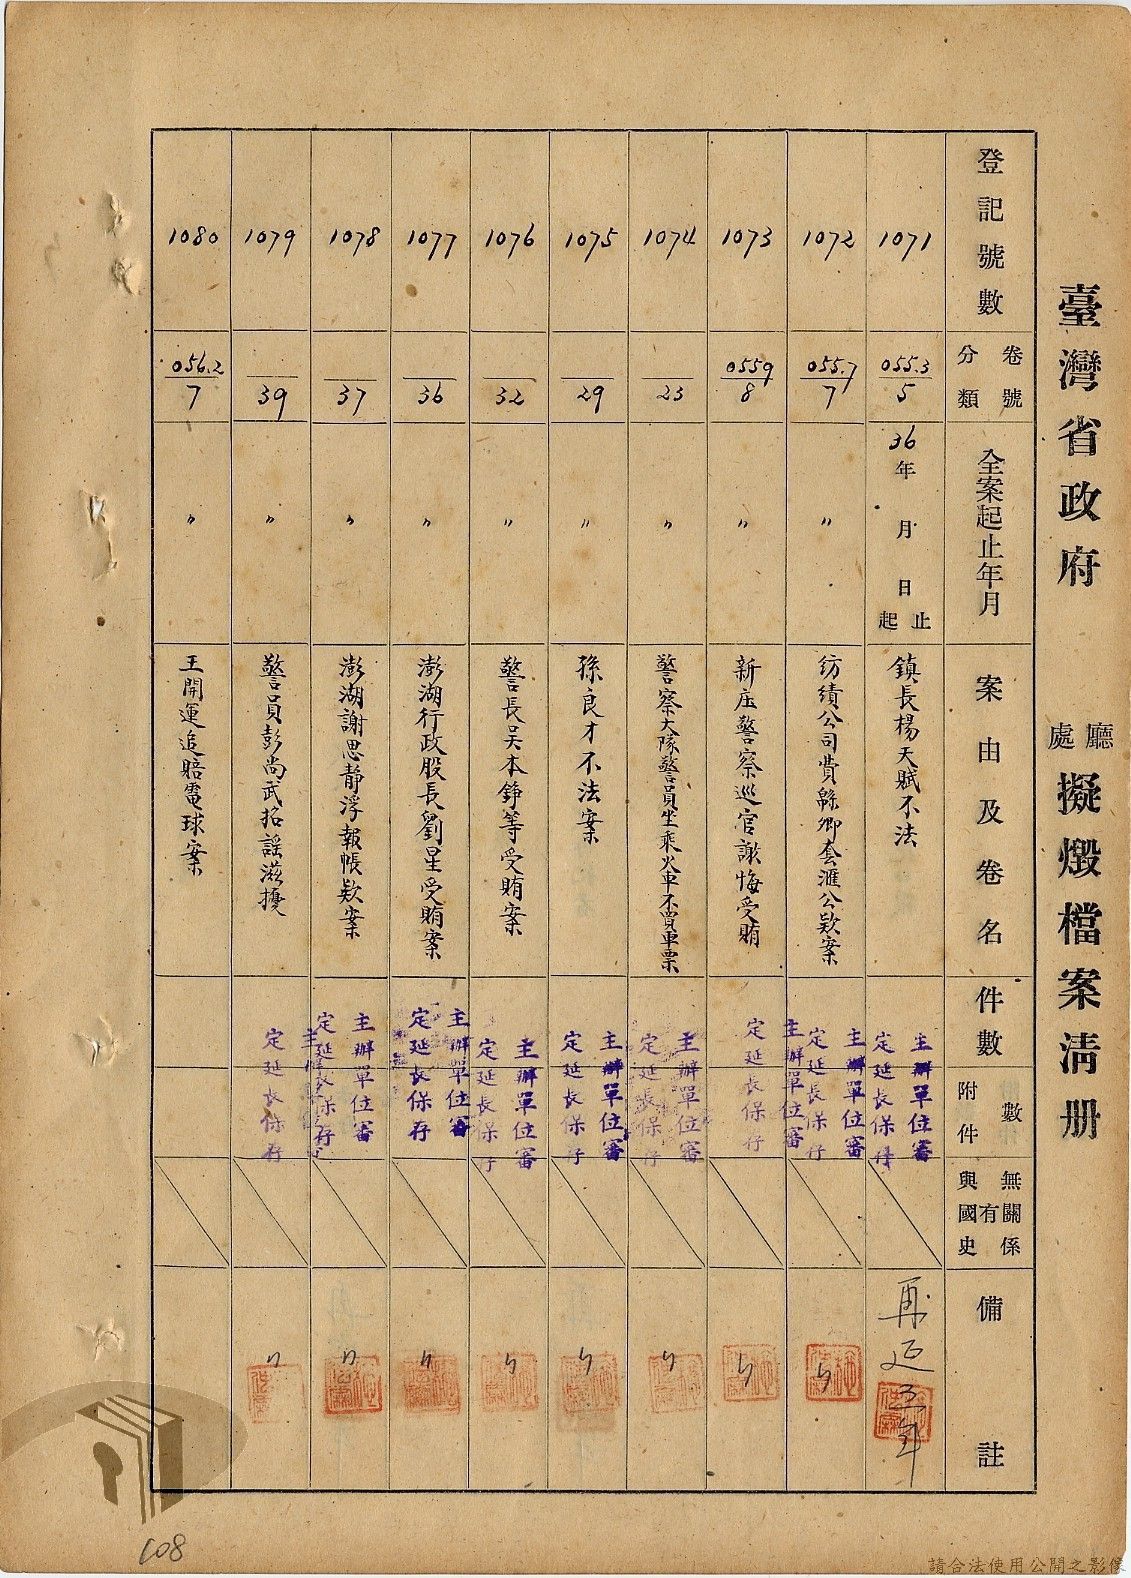 臺灣省政府 廳處 擬燬檔案清册
登記號數
卷號分類
全案起止年月
案由及卷名
件數
附件數
與國史有無關係
備註
1071 055.3/5 36年 月 日起止 鎮長楊天賦不法 主辦單位審定延長保存 再延五年
1072 055.7/7 〃 紡績公司費縣卿套滙公欵案 主辦單位審定延長保存 〃
1073 0559/8 〃 新庄警察巡官謝悔受賄 主辦單位審定延長保存 〃
1074 23 〃 警察大隊警員坐乘火車不買車票 主辦單位審定延長保存 〃
1075 29 〃 孫良才不法案 主辦單位審定延長保存 〃
1076 32 〃 警長吴本錚等受賄案 主辦單位審定延長保存 〃
1077 36 〃 澎湖行政股長劉星受賄案 主辦單位審定延長保存 〃
1078 37 〃 澎湖謝思静浮報帳欵案 主辦單位審定延長保存 〃
1079 39 〃 警員彭尚武招謡滋擾 定延長保存 〃
1080 056.2/7 〃 王開運追賠電球案
108
請合法使用公開之影像